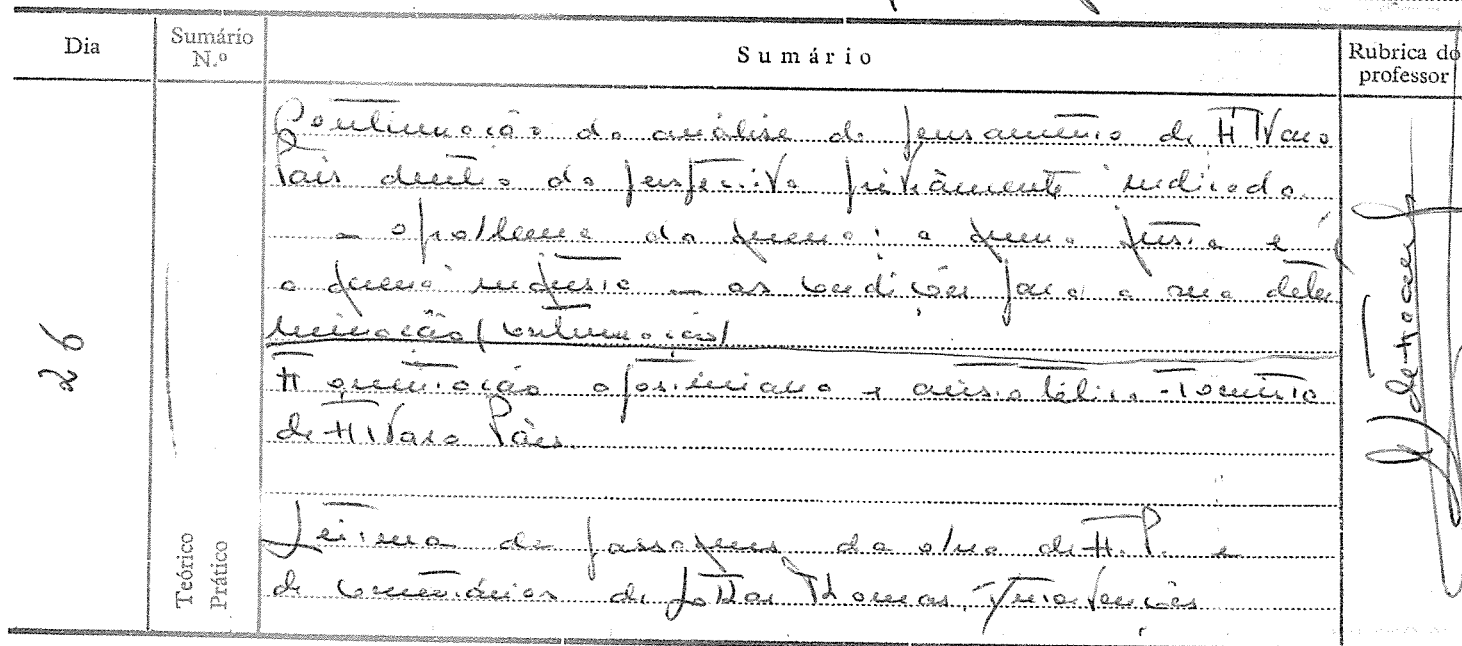 Dia
Sumário N.º
Sumário
Rubrica do professor
26
Continuação da análise do pensamento de Álvaro
Pais dentro da perspectiva préviamente indicada.
– o problema da guerra: a guerra justa e
a guerra injusta – as condições para a sua deter
minação (continuação)
A orientação agostiniana e aristotélico-tomista
de Álvaro Pais.
Leitura de passagens da obra de A. P. e
de comentários de Thomas
Teórico
Prático